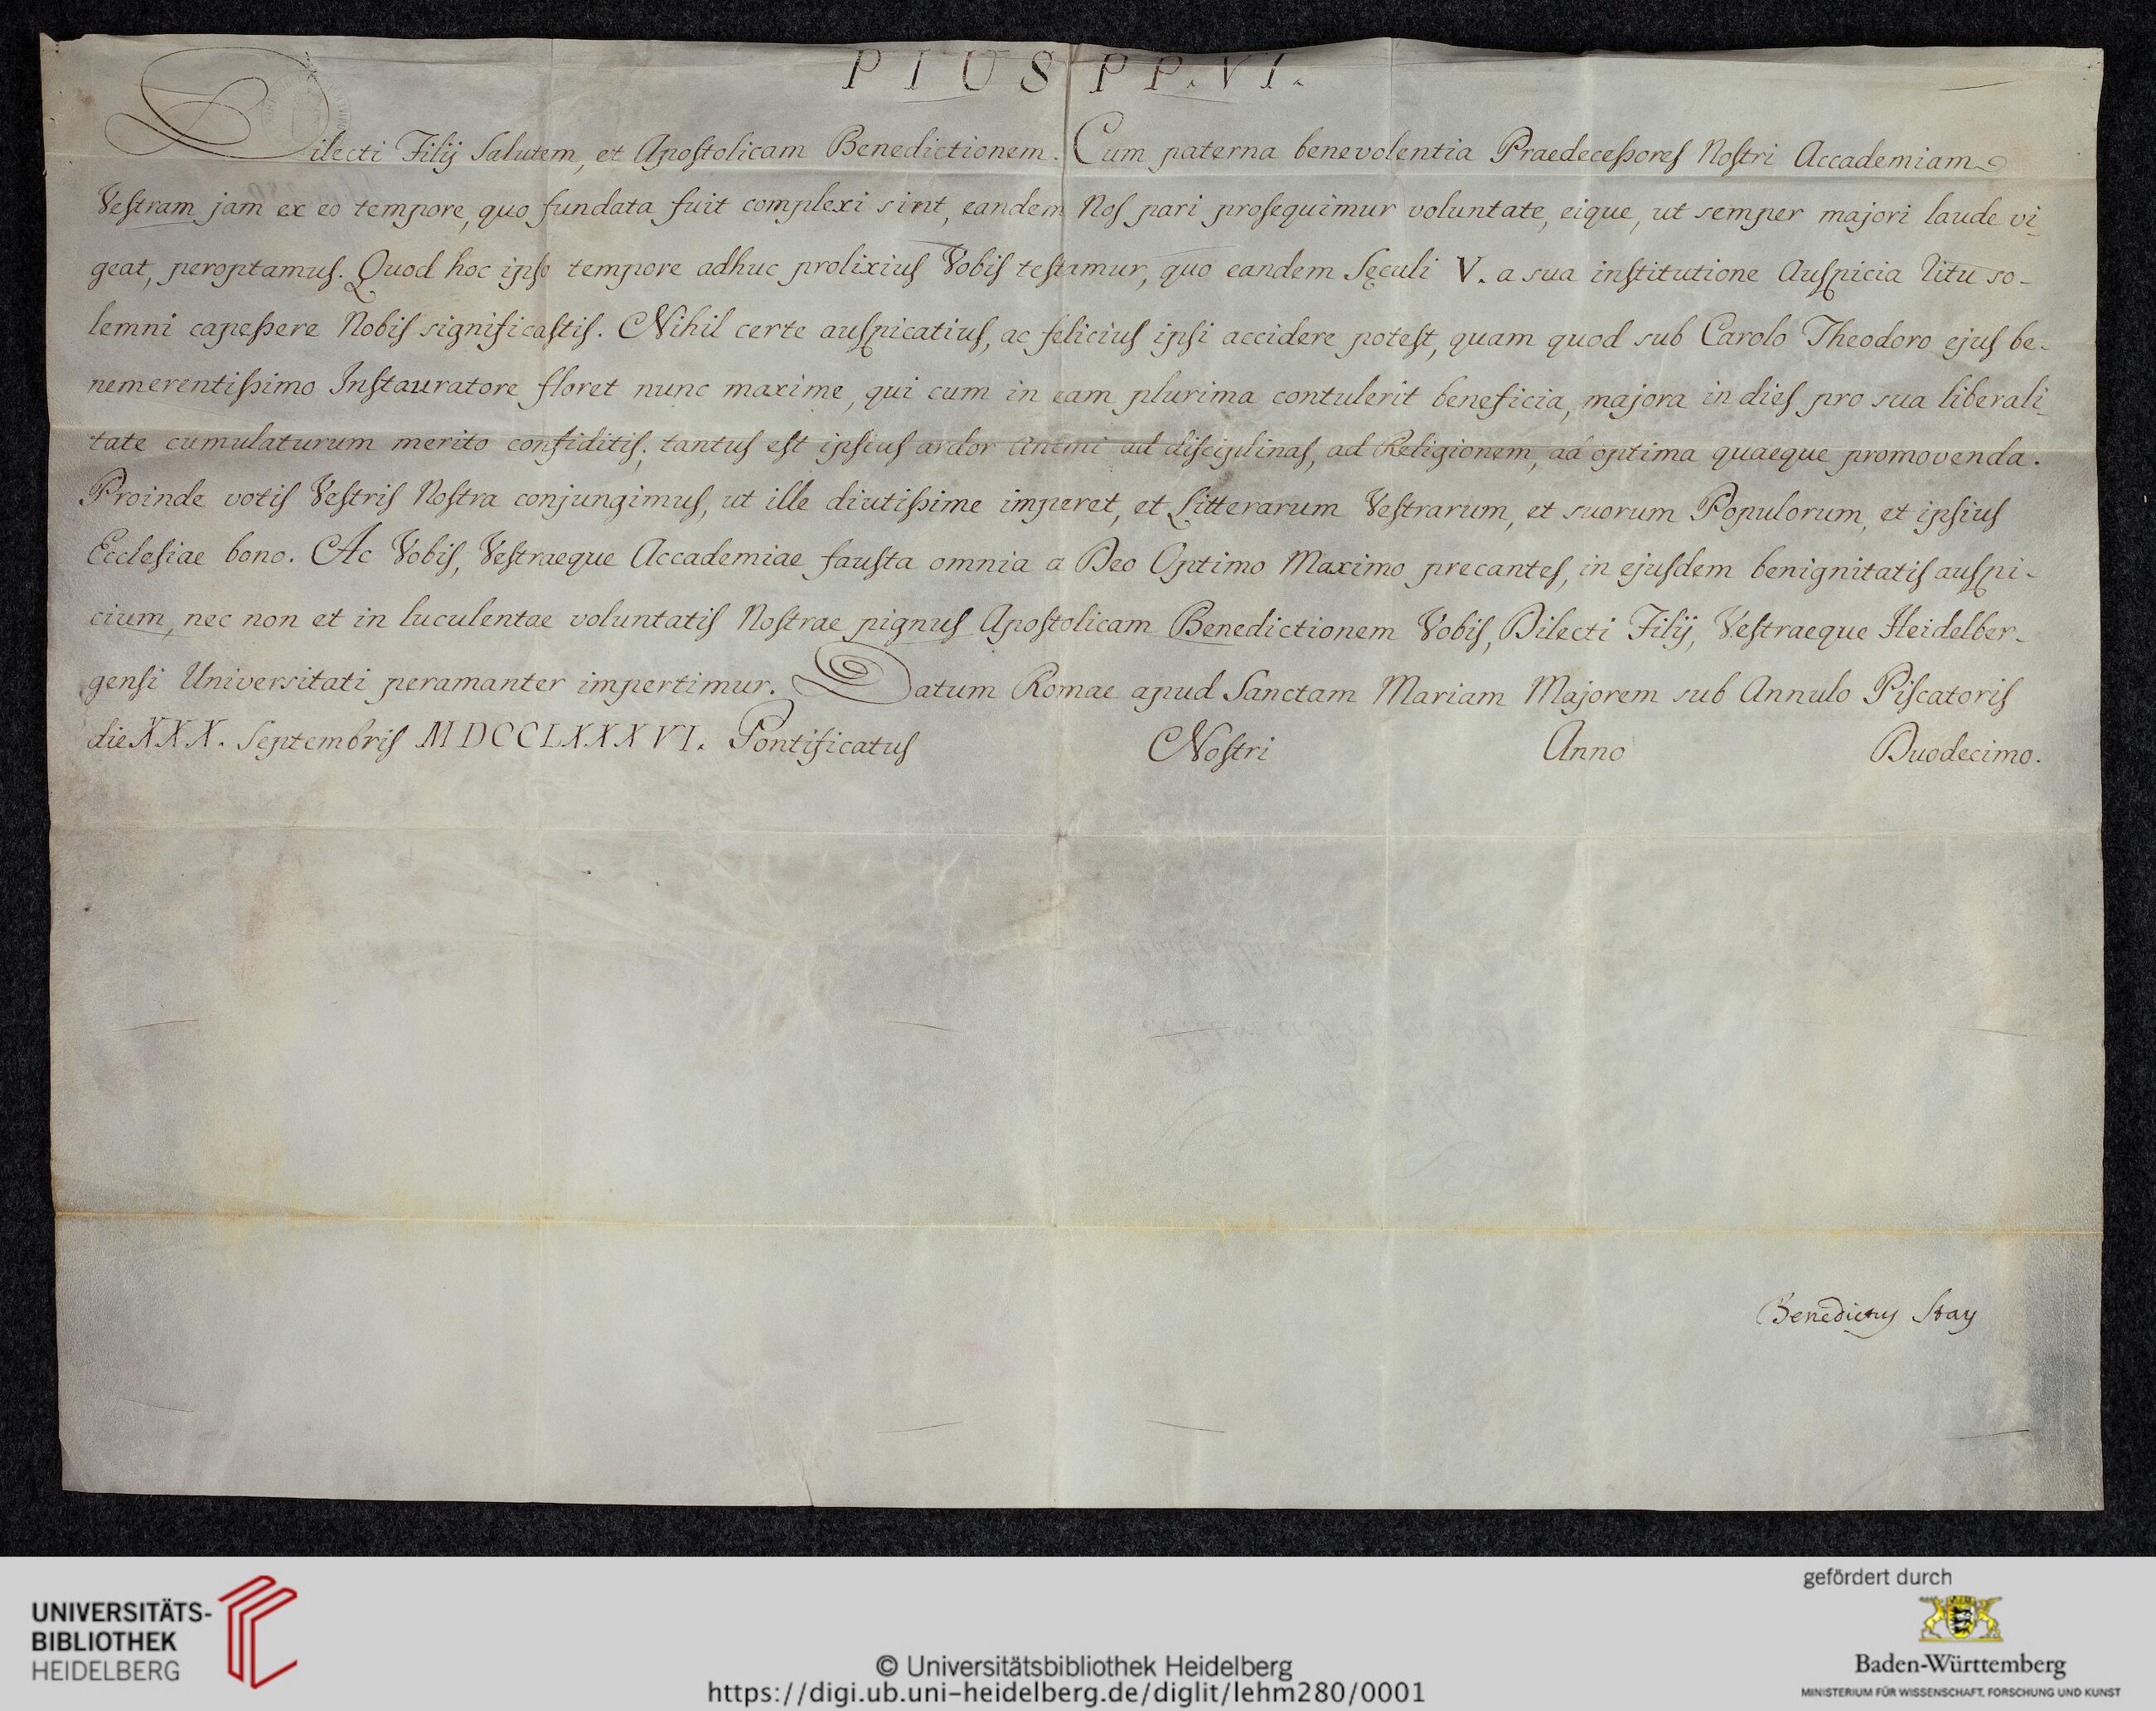 PIUS PP. VI.
Dilecti Filij Salutem, et Apoſtolicam Benedictionem. Cum paterna benevolentia Praedeceßoreſ Noſtri Accademiam
Veſtram jam ex eo tempore, quo fundata fuit complexi sint, eandem Noſ pari proſequimur voluntate, eique, ut semper majori laude vi_
geat, peroptamuſ. Quod hoc ipſo tempore adhuc prolixiuſ Vobiſ teſtamur, quo eandem Sęculi V. a sua institutione Auſpicia Ritu so-
lemni capeßere Nobiſ significaſtiſ. Nihil certe auſpicatiuſ, ac feliciuſ ipſi accidere poteſt, quam quod sub Carolo Theodoro ejuſ be-
nemerentißimo Inſtauratore floret nunc maxime, qui cum in eam plurima contulerit beneficia, majora in dieſ pro sua liberali_
tate cumulaturum merito confiditiſ; tantuſ eſt ipſiuſ ardor Animi ad diſciplinaſ, ad Religionem, ad optima quaeque promovenda.
Proinde votiſ Veſtriſ Noſtra conjungimuſ, ut ille diutißime imperet, et Litterarum Veſtrarum, et suorum Populorum, et ipſiuſ
Eccleſiae bono. Ac Vobiſ, Veſtraeque Accademiae fauſta omnia a Deo Optimo Maximo precanteſ, in ejuſdem benignitatiſ auſpi-
cium, nec non et in luculentae voluntatiſ Noſtrae pignuſ Apoſtolicam Benedictionem Vobiſ, Dilecti Filij, Veſtraeque Heidelber-
genſi Universitati peramanter impertimur. Datum Romae apud Sanctam Mariam Majorem sub Annulo Piſcatoriſ
die XXX. Septembriſ MDCCLXXXVI. Pontificatuſ Noſtri Anno Duodecimo.
Benedictus Stay
UNIVERSITÄTS-
BIBLIOTHEK
HEIDELBERG
© Universitätsbibliothek Heidelberg
https://digi.ub.uni-heidelberg.de/diglit/lehm280/0001
gefördert durch
Baden-Württemberg
MINISTERIUM FÜR WISSENSCHAFT, FORSCHUNG UND KUNST